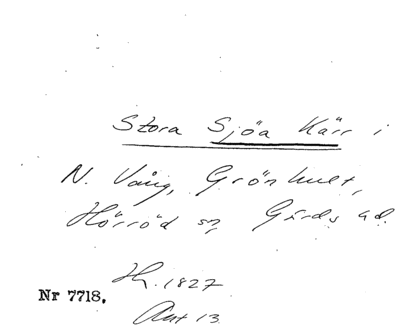 Stora Sjöa Kärr i
N. Vång, Grönhult,
Hörröd sn, Gärds hd.
H. 1827
Akt 13.
Nr 7718.